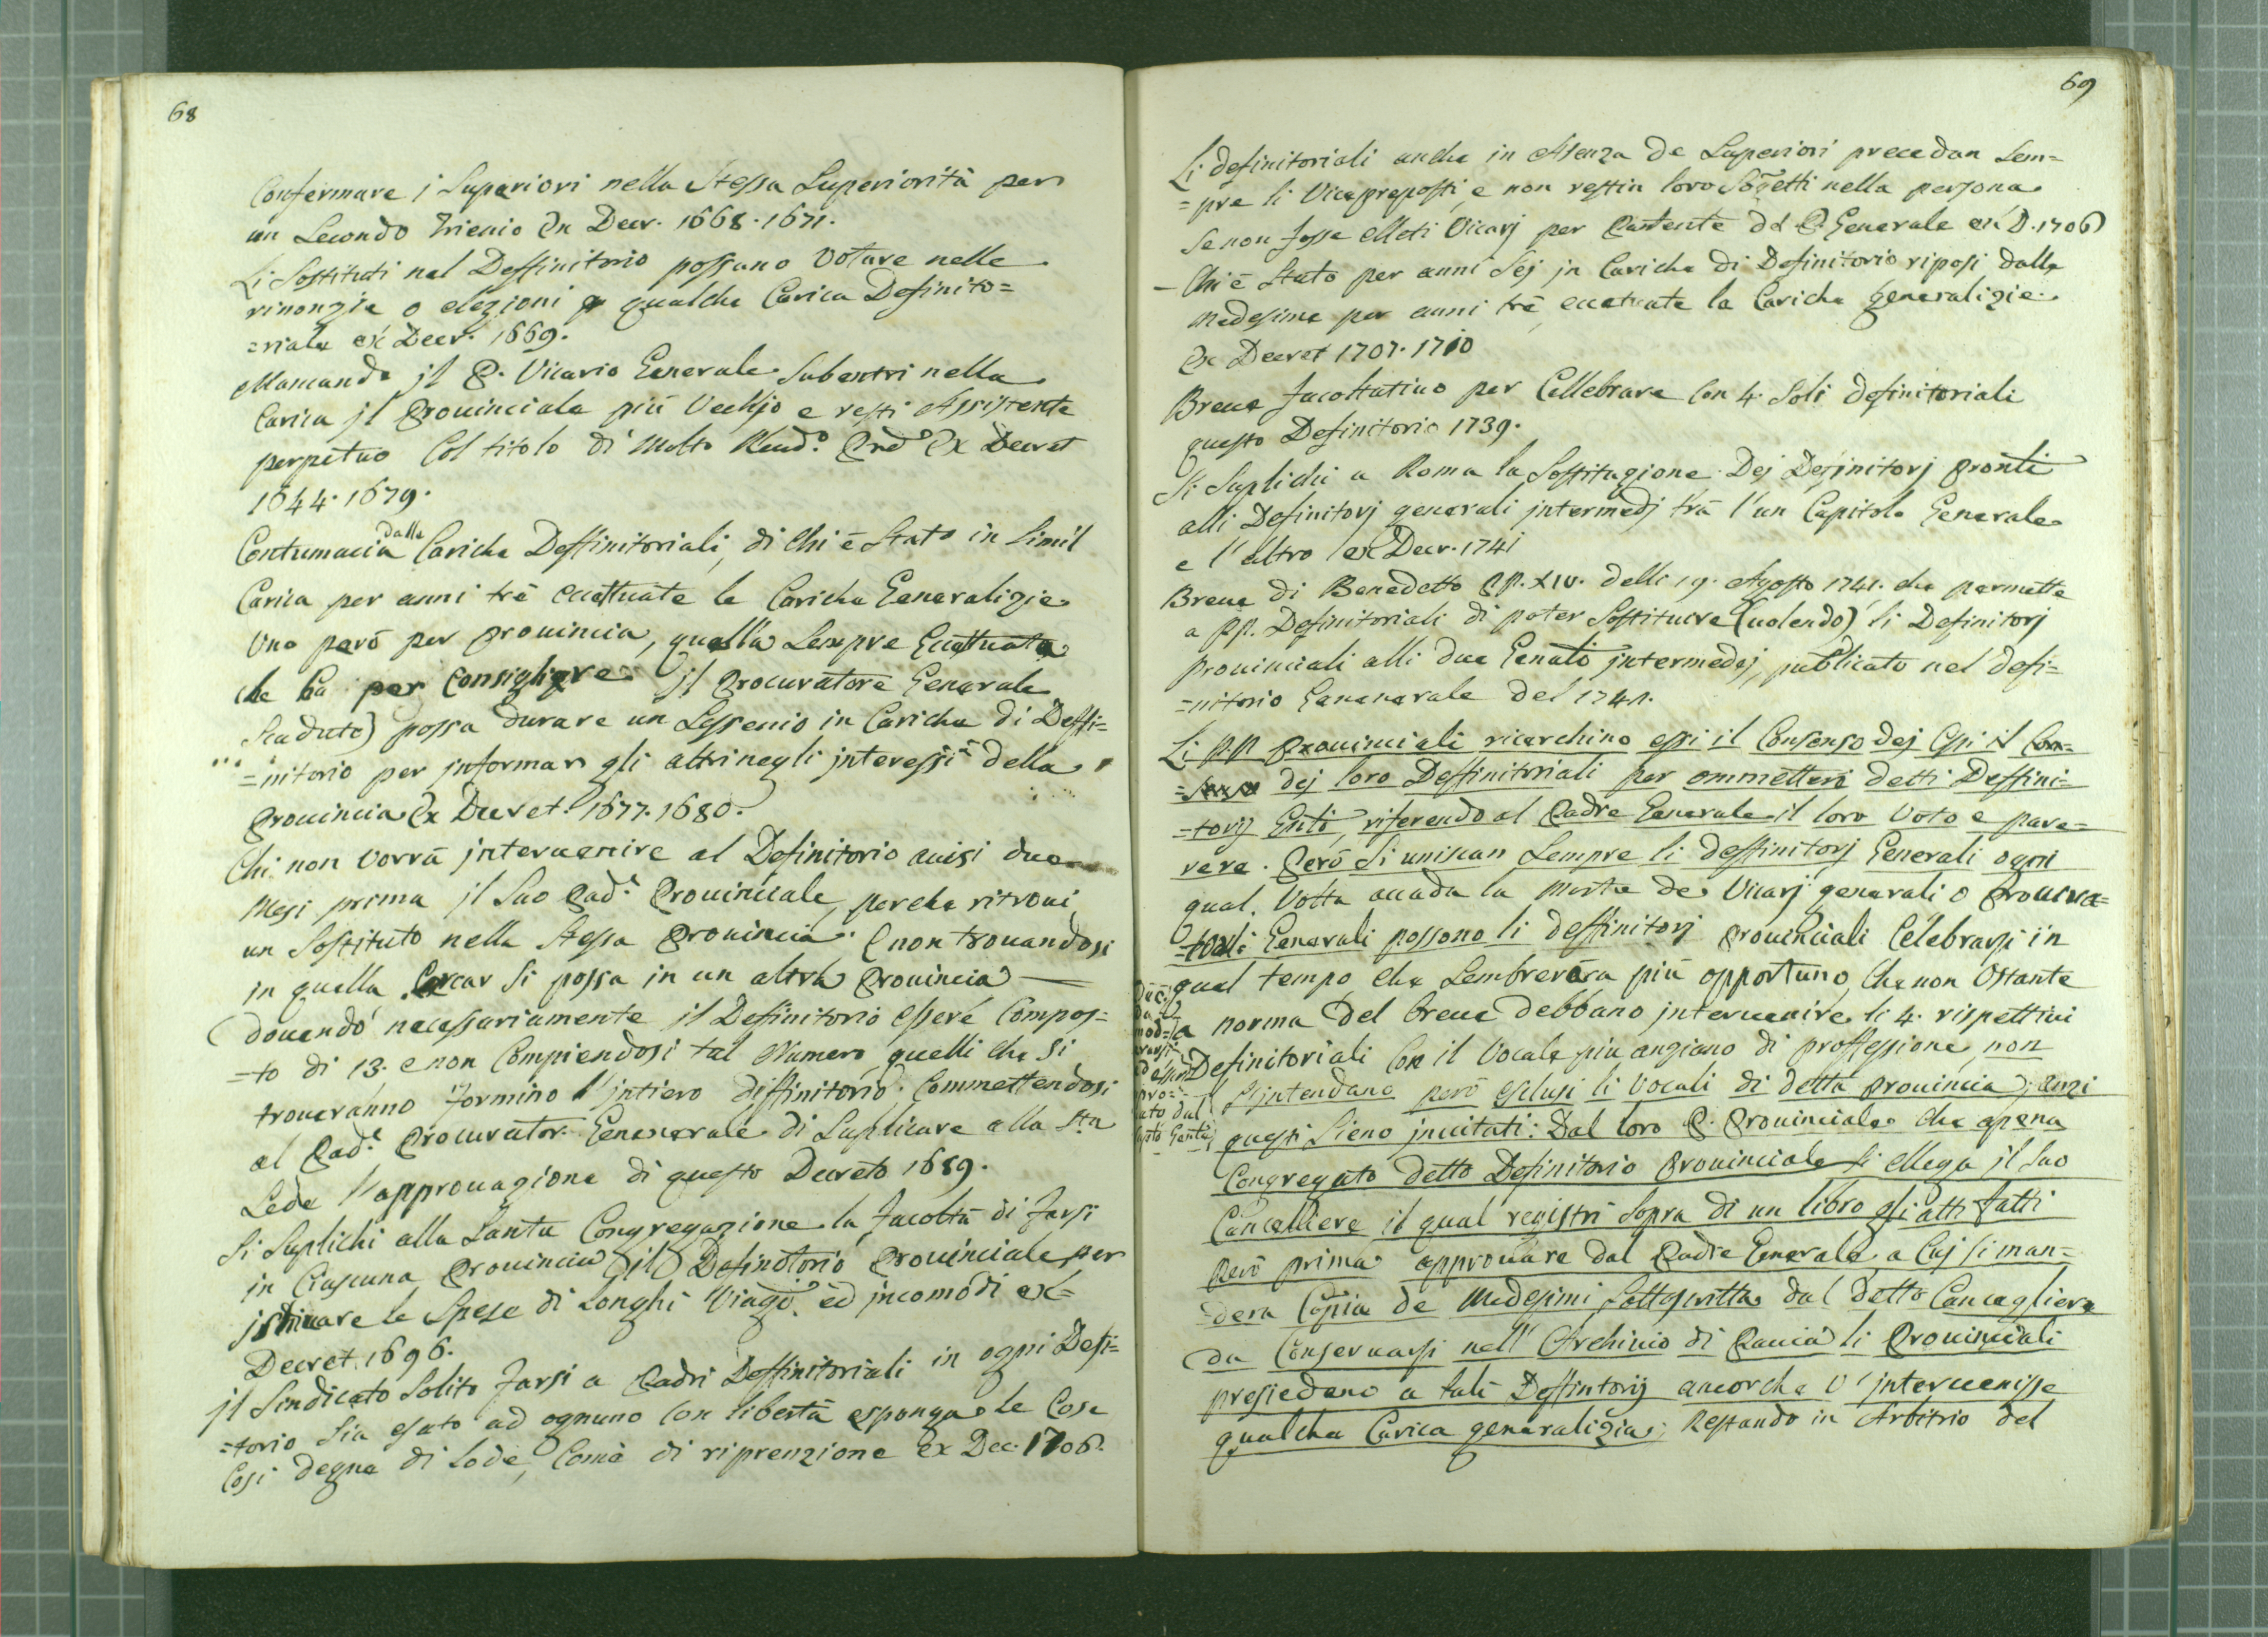 68
Confermare i Superiori nella Stessa Superiorità per
un Secondo Trienio Ex Decr. 1668. 1671.
Li Sostituti nel Deffinitorio possano Votare nelle
rinonzie o elezioni qualche Carica Definito=
=riale ex Decr. 1669.
Mancando jl P. Vicario Generale Subentri nella
Carica jl Provinciale più Vechjo e resti Assistente
perpetuo Col titolo di Molto Rend.o Ex Decret
1644. 1679.
Contumacia dalle Cariche Deffinitoriali, di Chi è Stato in Simil
Carica per anni trè eccettuate le Cariche Generalizie
Uno però per provincia, quella Sempre Eccettuata
che ha per Consigliere jl Procuratore Generale
Scaduto) possa durare un Sessenio in Cariche di Deffi=
=nitorio per jnformar gli altri negli jnteressi della
Provincia Ex Decret. 1677. 1680.
Chi non vorrà jntervenire al Definitorio avisi due
Mesi prima jl Suo Pad.e Provinciale, perche ritrovi
un Sostituto nella Stessa Provincia. E non trovandosi
jn quella Cercar Si possa in un altra Provincia —
dovendo necessariamente jl Definitorio essere Compos=
=to di 13. e non Compiendosi tal Numero quelli che Si
troveranno formino l'jntiero diffinitorio. Commettendosi
al Pad.e Procurator Genenerale di Suplicare alla S.ta
Sede l'approvazione di questo Decreto 1689.
Si Suplichi alla Santa Congregazione la facoltà di farsi
in Ciascuna Provincia (il) Definitorio Provinciale per
le Spese di Longhi Viagi. ed jncomodi ex=
Decret. 1696.
jl Sindicato Solito farsi a Padri Deffinitoriali in ogni Defi=
=torio Sia esato ad ognuno Con libertà esponga le Cose
Cosi degne di Lode, Come di riprenzione ex Dec. 1706.
69
Li definitoriali anche in Asenza de Superiori precedan Sem=
=pre li Vicepreposti, e non restin loro Sogetti nella persona
Se non fosse elleti Vicarj per Pantente del P. Generale ex D. 1706
— Chi è Stato per anni Sej jn Cariche di Definitorio riposi dalle
Medesime per anni trè eccetuate la Cariche generalizie.
Ex Decret 1707. 1710
Breve facoltativo per Cellebrare Con 4. Soli definitoriali
questo Definitorio 1739.
Si Suplichi a Roma la Sostituzione Dej Definitorj Pronti
alli Definitorj generali jntermedj trà l'un Capitolo Generale
e l'altro ex Decr. 1741
Breve di Benedetto PP. XIV. delli 19. Agosto 1741. che permette
a PP. Definitoriali di poter Sostituire (volendo) li Definitorj
Provinciali alli due Genali jntermedej, publicato nel defi=
=nitorio Gananerale del 1741.
Li P.P. Provinciali ricerchino essi il Consenso dej il Con=
dej loro Deffinitoriali per ommetteri detti Deffini=
=torij, riferendo al Padre Generale il loro Voto e pare=
rere. Però Si uniscan Sempre li deffinitorj Generali ogni
qual. Volta accada la Morte de Vicarj generali o Procura=
=tori Generali possono li deffinitorj Provinciali Celebrarsi in
qual tempo, che Sembrerà più opportuno, Che non Ostante
a norma Del breve debbano jntervenire li 4. rispettivi
Definitoriali Con il Vocale piu anziano di proffessione non
S'jntendano però esclusi li Vocali di detta Provincia, anzi
questi Sieno jnvitati: Dal loro P. Provinciale che apena
Congregato detto Definitorio Provinciale Si ellega jl Suo
Cancelliere il qual registri Sopra di un libro gli atti fatti
Però prima approvare dal Padre Generale a Cuj Si man=
=dera Copia de Medesimi Sottoscritta dal detto Cancegliere
da Conservarsi nell' Archivio di Pavia li Provinciali
presiedano a tali Deffintorij ancorche v'jntervenisse
qualche Carica generalizia; Restando in Arbitrio del